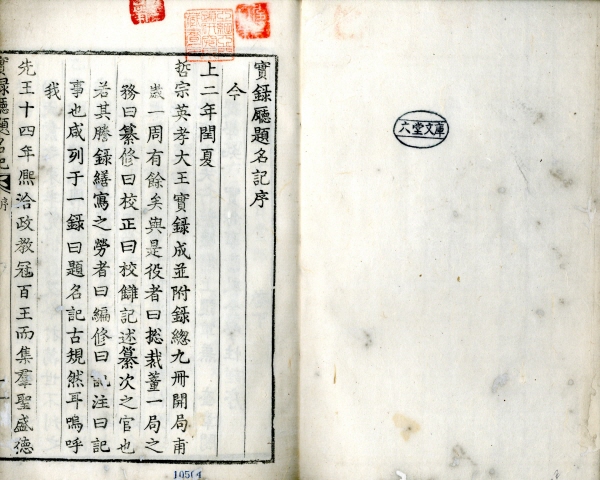 實錄廳題名記序
今
上二年閏夏
哲宗英孝大王實錄成並附錄總九冊開局甫
歲一周有餘矣與是役者曰摠裁董一局之
務曰纂修曰校正曰校讎記述纂次之官也
若其謄錄繕寫之勞者曰編修曰記注曰記
事也咸列于一錄曰題名記古規然耳嗚呼
我
先王十四年熙洽政教冠百王而集羣聖盛德
實錄廳題名記
序
六堂文庫